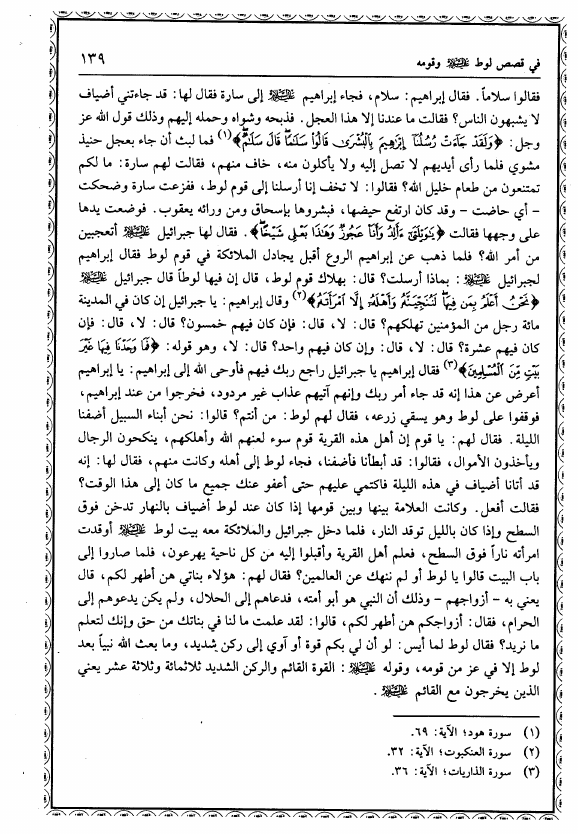 في قصص لوط عليه السلام وقومه ١٣٩
فقالوا سلاماً. فقال إبراهيم: سلام، فجاء إبراهيم عليه السلام إلى سارة فقال لها: قد جاءتني أضياف
لا يشبهون الناس؟ فقالت ما عندنا إلا هذا العجل. فذبحه وشواه وحمله إليهم وذلك قول الله عز
وجل: ﴿وَلَقَدْ جَاءَتْ رُسُلُنَا إِبْرَاهِيمَ بِالْبُشْرَى قَالُوا سَلَامًا قَالَ سَلَامٌ﴾(١) فما لبث أن جاء بعجل حنيذ
مشوي فلما رأى أيديهم لا تصل إليه ولا يأكلون منه، خاف منهم، فقالت لهم سارة: ما لكم
تمتنعون من طعام خليل الله؟ فقالوا: لا تخف إنا أرسلنا إلى قوم لوط، ففزعت سارة وضحكت
- أي حاضت - وقد كان ارتفع حيضها، فبشروها بإسحاق ومن ورائه يعقوب. فوضعت يدها
على وجهها فقالت ﴿يَاوَيْلَتَى ءَأَلِدُ وَأَنَا عَجُوزٌ وَهَذَا بَعْلِي شَيْخًا﴾. فقال لها جبرائيل عليه السلام أتعجبين
من أمر الله؟ فلما ذهب عن إبراهيم الروع أقبل يجادل الملائكة في قوم لوط فقال إبراهيم
لجبرائيل عليه السلام: بماذا أرسلت؟ قال: بهلاك قوم لوط، قال إن فيها لوطاً قال جبرائيل عليه السلام
﴿نَحْنُ أَعْلَمُ بِمَنْ فِيهَا لَنُنَجِّيَنَّهُ وَأَهْلَهُ إِلَّا امْرَأَتَهُ﴾(٢) وقال إبراهيم: يا جبرائيل إن كان في المدينة
مائة رجل من المؤمنين تهلكهم؟ قال: لا، قال: فإن كان فيهم خمسون؟ قال: لا، قال: فإن
كان فيهم عشرة؟ قال: لا، قال: وإن كان فيهم واحد؟ قال: لا، وهو قوله: ﴿فَمَا وَجَدْنَا فِيهَا غَيْرَ
بَيْتٍ مِنَ الْمُسْلِمِينَ﴾(٣) فقال إبراهيم يا جبرائيل راجع ربك فيهم فأوحى الله إلى إبراهيم: يا إبراهيم
أعرض عن هذا إنه قد جاء أمر ربك وإنهم آتيهم عذاب غير مردود، فخرجوا من عند إبراهيم،
فوقفوا على لوط وهو يسقي زرعه، فقال لهم لوط: من أنتم؟ قالوا: نحن أبناء السبيل أضفنا
الليلة. فقال لهم: يا قوم إن أهل هذه القرية قوم سوء لعنهم الله وأهلكهم، ينكحون الرجال
ويأخذون الأموال، فقالوا: قد أبطأنا فأضفنا، فجاء لوط إلى أهله وكانت منهم، فقال لها: إنه
قد أتانا أضياف في هذه الليلة فاكتمي عليهم حتى أعفو عنك جميع ما كان إلى هذا الوقت؟
فقالت أفعل. وكانت العلامة بينها وبين قومها إذا كان عند لوط أضياف بالنهار تدخن فوق
السطح وإذا كان بالليل توقد النار، فلما دخل جبرائيل والملائكة معه بيت لوط عليه السلام أوقدت
امرأته ناراً فوق السطح، فعلم أهل القرية وأقبلوا إليه من كل ناحية يهرعون، فلما صاروا إلى
باب البيت قالوا يا لوط أو لم ننهك عن العالمين؟ فقال لهم: هؤلاء بناتي هن أطهر لكم، قال
يعني به - أزواجهم - وذلك أن النبي هو أبو أمته، فدعاهم إلى الحلال، ولم يكن يدعوهم إلى
الحرام، فقال: أزواجكم هن أطهر لكم، قالوا: لقد علمت ما لنا في بناتك من حق وإنك لتعلم
ما نريد؟ فقال لوط لما أيس: لو أن لي بكم قوة أو آوي إلى ركن شديد، وما بعث الله نبياً بعد
لوط إلا في عز من قومه، وقوله عليه السلام: القوة القائم والركن الشديد ثلاثمائة وثلاثة عشر يعني
الذين يخرجون مع القائم عليه السلام.
(١) سورة هود؛ الآية: ٦٩.
(٢) سورة العنكبوت؛ الآية: ٣٢.
(٣) سورة الذاريات؛ الآية: ٣٦.